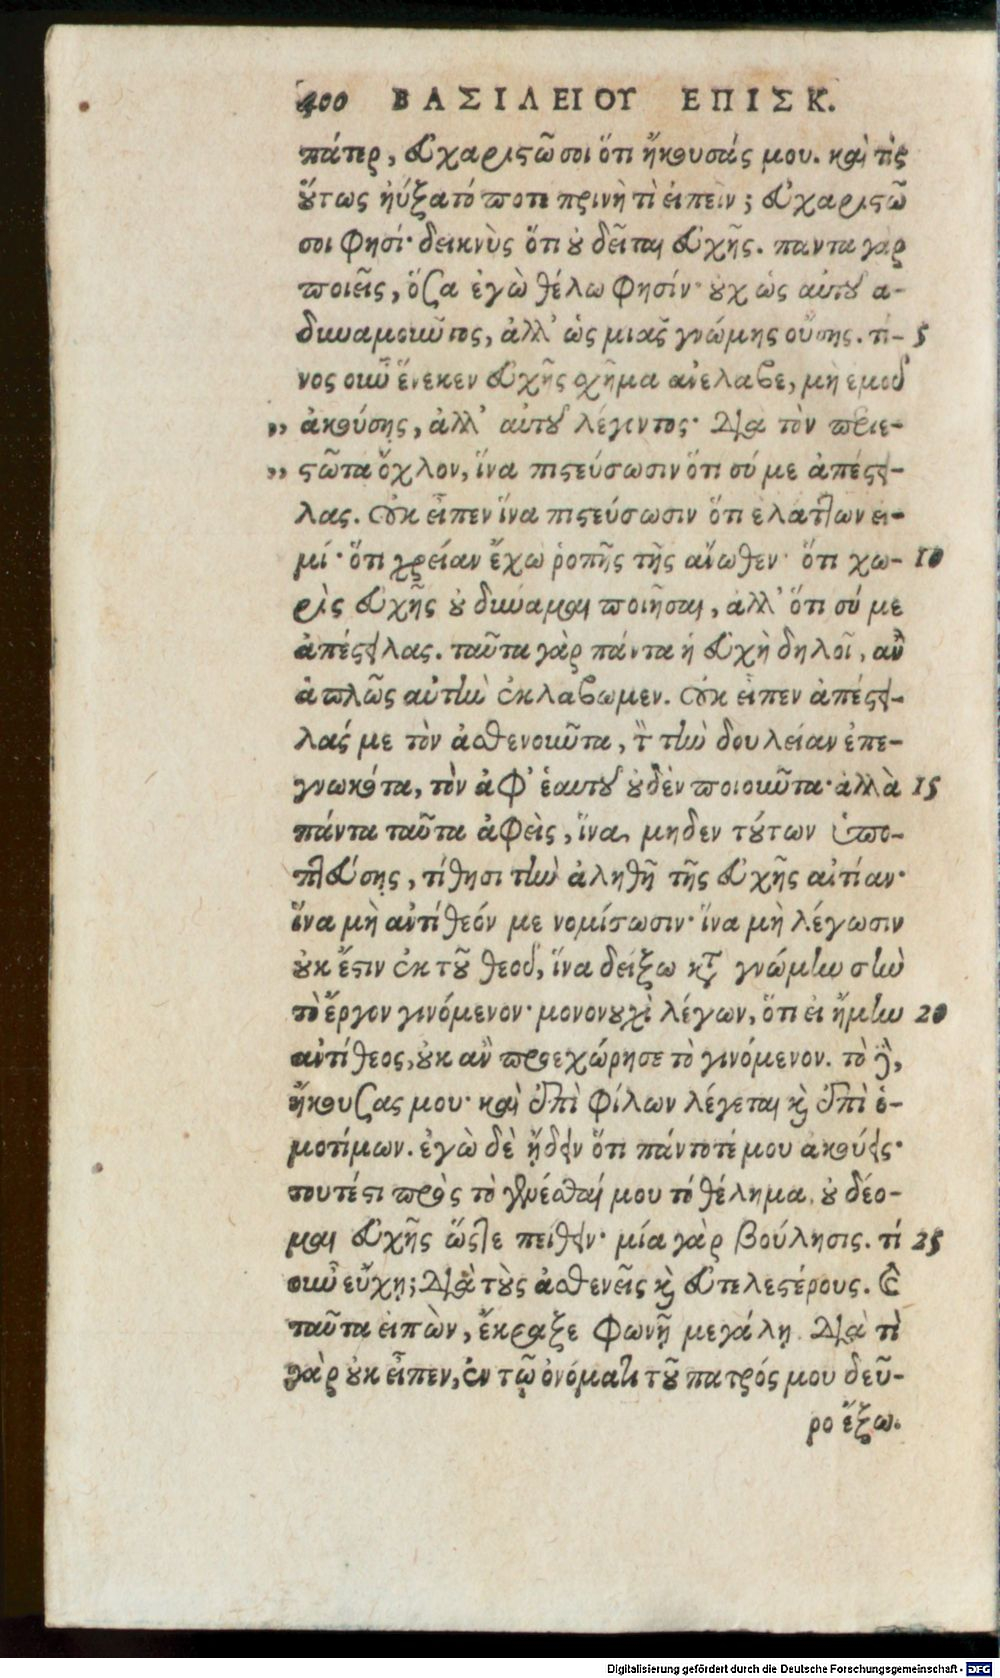 400 ΒΑΣΙΛΕΙΟΥ ΕΠΙΣΚ.
πάτερ, εὐχαριστῶ σοι ὅτι ἤκουσάς μου. καὶ τίς
οὕτως ηὔξατό ποτε πρινὴ τὶ εἰπεῖν; εὐχαριστῶ
σοι φησί· δεικνὺς ὅτι οὐ δεῖται εὐχῆς. παντα γὰρ
ποιεῖς, ὅσα ἐγὼ θέλω φησίν· οὐχ ὡς αὐτοῦ ἀ-
δυναμοῦντος, ἀλλ' ὡς μιᾶς γνώμης οὔσης. τί- 5
νος οὖν ἕνεκεν εὐχῆς σχῆμα ἀνέλαβε, μὴ ἐμοῦ
" ἀκούσῃς, ἀλλ' αὐτοῦ λέγοντος· Διὰ τὸν περιε-
" στῶτα ὄχλον, ἵνα πιστεύσωσιν ὅτι σύ με ἀπέστει-
λας. Οὐκ εἶπεν ἵνα πιστεύσωσιν ὅτι ἐλάττων εἰ-
μί· ὅτι χρείαν ἔχω ῥοπῆς τῆς ἄνωθεν· ὅτι χω- 10
ρὶς εὐχῆς οὐ δύναμαι ποιῆσαι, ἀλλ' ὅτι σύ με
ἀπέστειλας. ταῦτα γὰρ πάντα ἡ εὐχὴ δηλοῖ, ἂν
ἁπλῶς αὐτὴν ἐκλάβωμεν. Οὐκ εἶπεν ἀπέστει-
λάς με τὸν ἀσθενοῦντα, τ τὴν δουλείαν ἐπε-
γνωκότα, τὸν ἀφ' ἑαυτοῦ οὐδὲν ποιοῦντα· ἀλλὰ 15
πάντα ταῦτα ἀφεὶς, ἵνα μηδεν τούτων ὑπο-
πτεύσῃς, τίθησι τὴν ἀληθῆ τῆς εὐχῆς αἰτίαν·
ἵνα μὴ ἀντίθεόν με νομίσωσιν· ἵνα μὴ λέγωσιν
οὐκ ἔστιν ἐκ τοῦ θεοῦ, ἵνα δείξω κατὰ γνώμην σὴν
τὸ ἔργον γινόμενον· μονονουχὶ λέγων, ὅτι εἰ ἤμην 20
ἀντίθεος, οὐκ ἂν προεχώρησε τὸ γινόμενον. τὸ δὲ,
ἤκουσας μου· καὶ ἐπὶ φίλων λέγεται καὶ ἐπὶ ὁ-
μοτίμων. ἐγὼ δὲ ᾔδειν ὅτι πάντοτέ μου ἀκούεις·
τουτέστι πρὸς τὸ γενέσθαι μου τὸ θέλημα οὐ δέο-
μαι εὐχῆς ὥστε πείθειν· μία γὰρ βούλησις. τί 25
οὖν εὔχῃ; Διὰ τοὺς ἀσθενεῖς καὶ εὐτελεστέρους. Καὶ
ταῦτα εἰπὼν, ἔκραξε φωνῇ μεγάλῃ. Διὰ τὶ
γὰρ οὐκ εἶπεν, ἐν τῷ ὀνόματι τοῦ πατρός μου δεῦ-
ρο ἔξω.
Digitalisierung gefördert durch die Deutsche Forschungsgemeinschaft - DFG